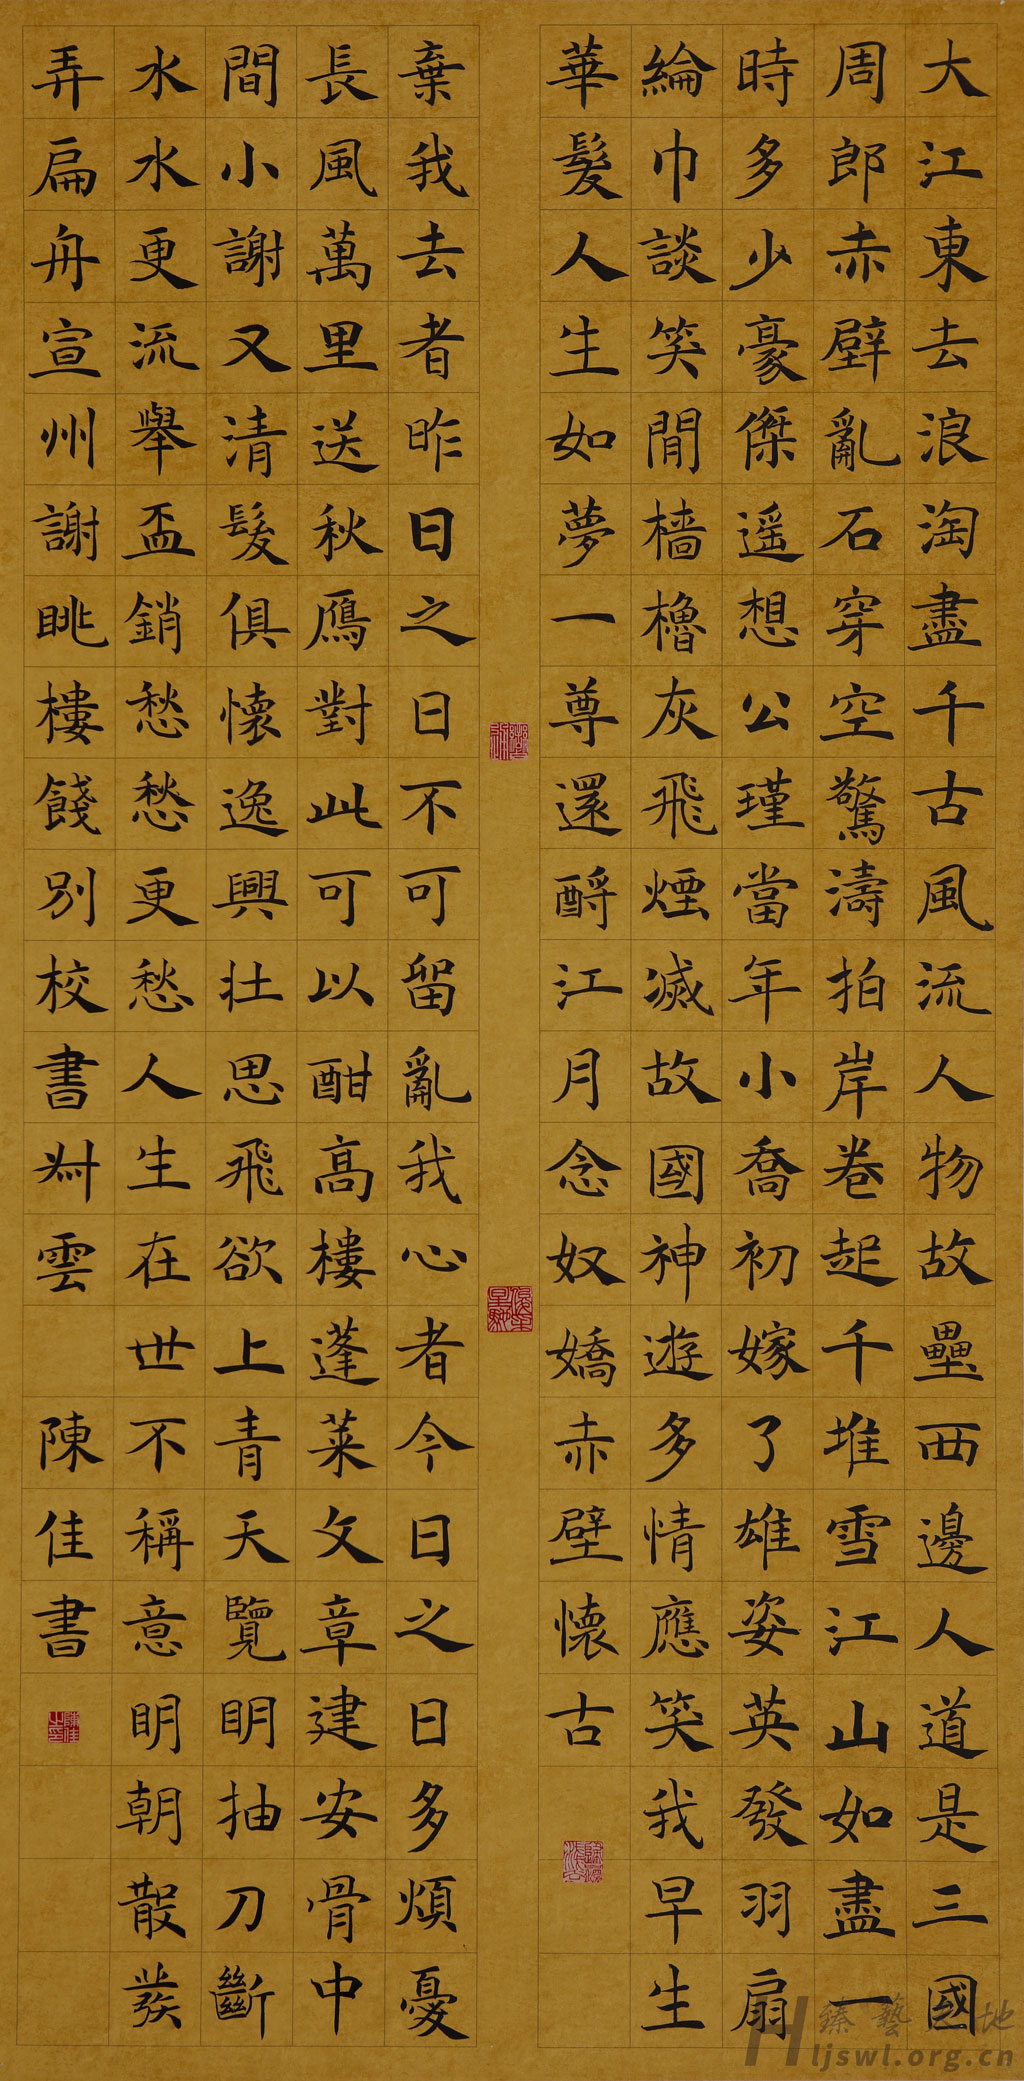 大江東去浪淘盡千古風流人物故壘西邊人道是三國
周郎赤壁亂石穿空驚濤拍岸卷起千堆雪江山如盡一
時多少豪傑遥想公瑾當年小喬初嫁了雄姿英發羽扇
綸巾談笑間檣櫓灰飛煙滅故國神遊多情應笑我早生
華髮人生如夢一尊還酹江月念奴嬌赤壁懷古
棄我去者昨日之日不可留亂我心者今日之日多煩憂
長風萬里送秋鴈對此可以酣高樓蓬萊文章建安骨中
間小謝又清髮俱懷逸興壯思飛欲上青天覽眀抽刀斷
水水更流舉盃銷愁愁更愁人生在世不稱意眀朝散發
弄扁舟宣州謝眺樓餞別校書叔雲 陳佳書
Hljswl.org.cn